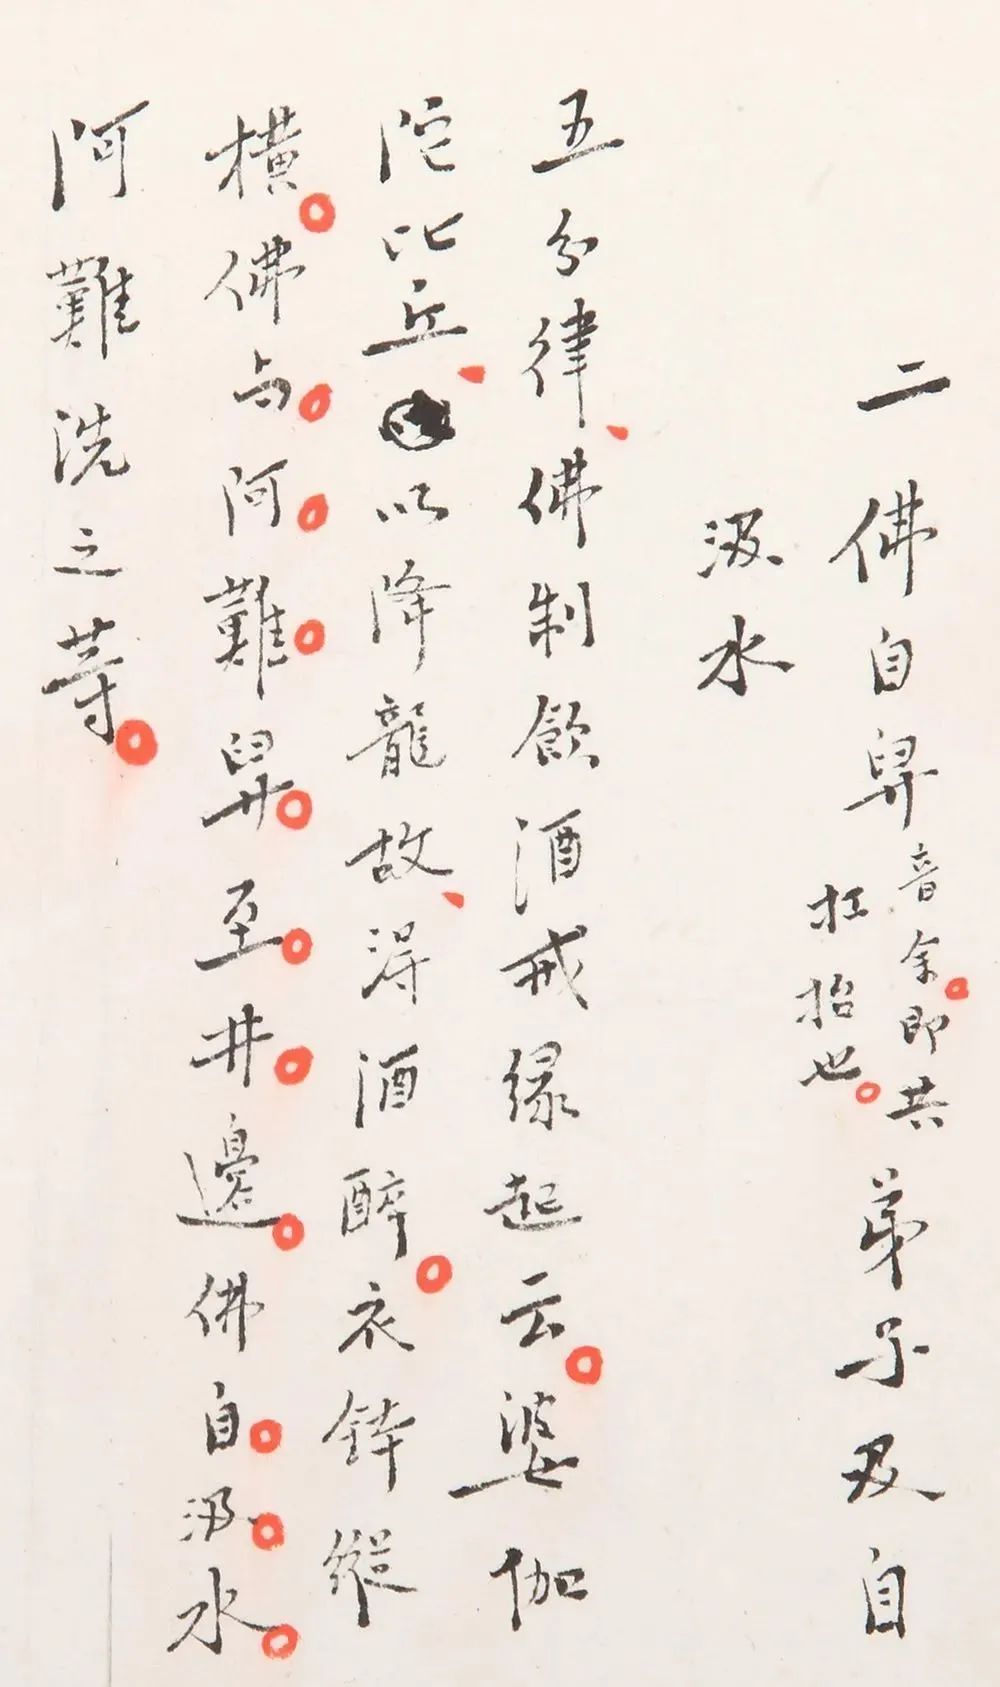 二佛自舁音余即共扛抬也弟子及自
汲水
五分律佛制飲酒戒緣起云婆伽
陀比丘以降龍故得酒醉衣鉢縱
橫佛与阿難舁至井邊佛自汲水
阿難洗之等